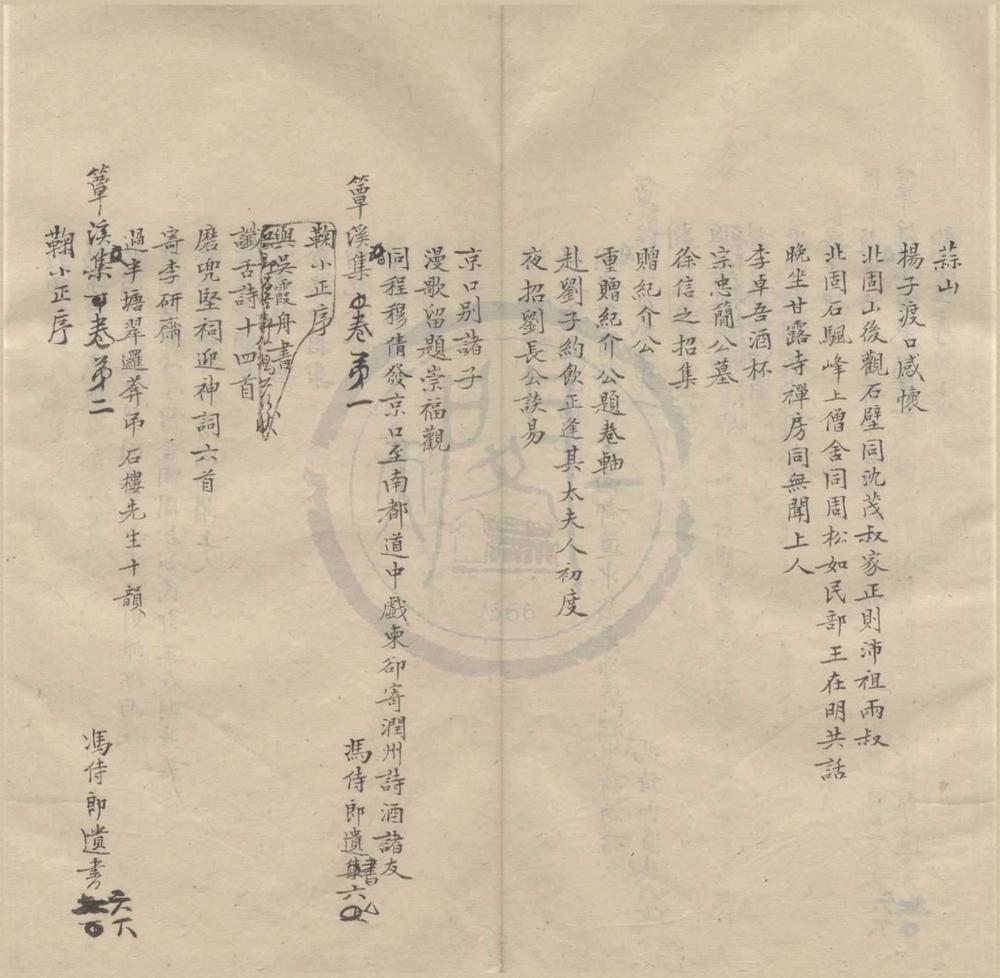 蒜山
楊子渡口感懷
北固山後觀石壁同沈茂叔家正則沛祖兩叔
北固石颿峰上僧舍同周松如民部王在明共話
晚坐甘露寺禪房同無聞上人
李卓吾酒杯
宗忠簡公墓
徐信之招集
贈紀介公
重贈紀介公題卷軸
赴劉子約飲正逢其太夫人初度
夜招劉長公談易
京口别諸子
漫歌留題崇福觀
同程穆倩發京口至南都道中戱柬郤寄潤州詩酒諸友
簟溪集卷第一
馮侍郎遺書六
鞠小正序
與吳霞舟書
讖舌詩十四首
磨兜堅祠迎神詞六首
寄李研齋
過半塘翠邏葊吊石樓先生十韻
簟溪集卷第二
馮侍郎遺書
六下
鞠小正序